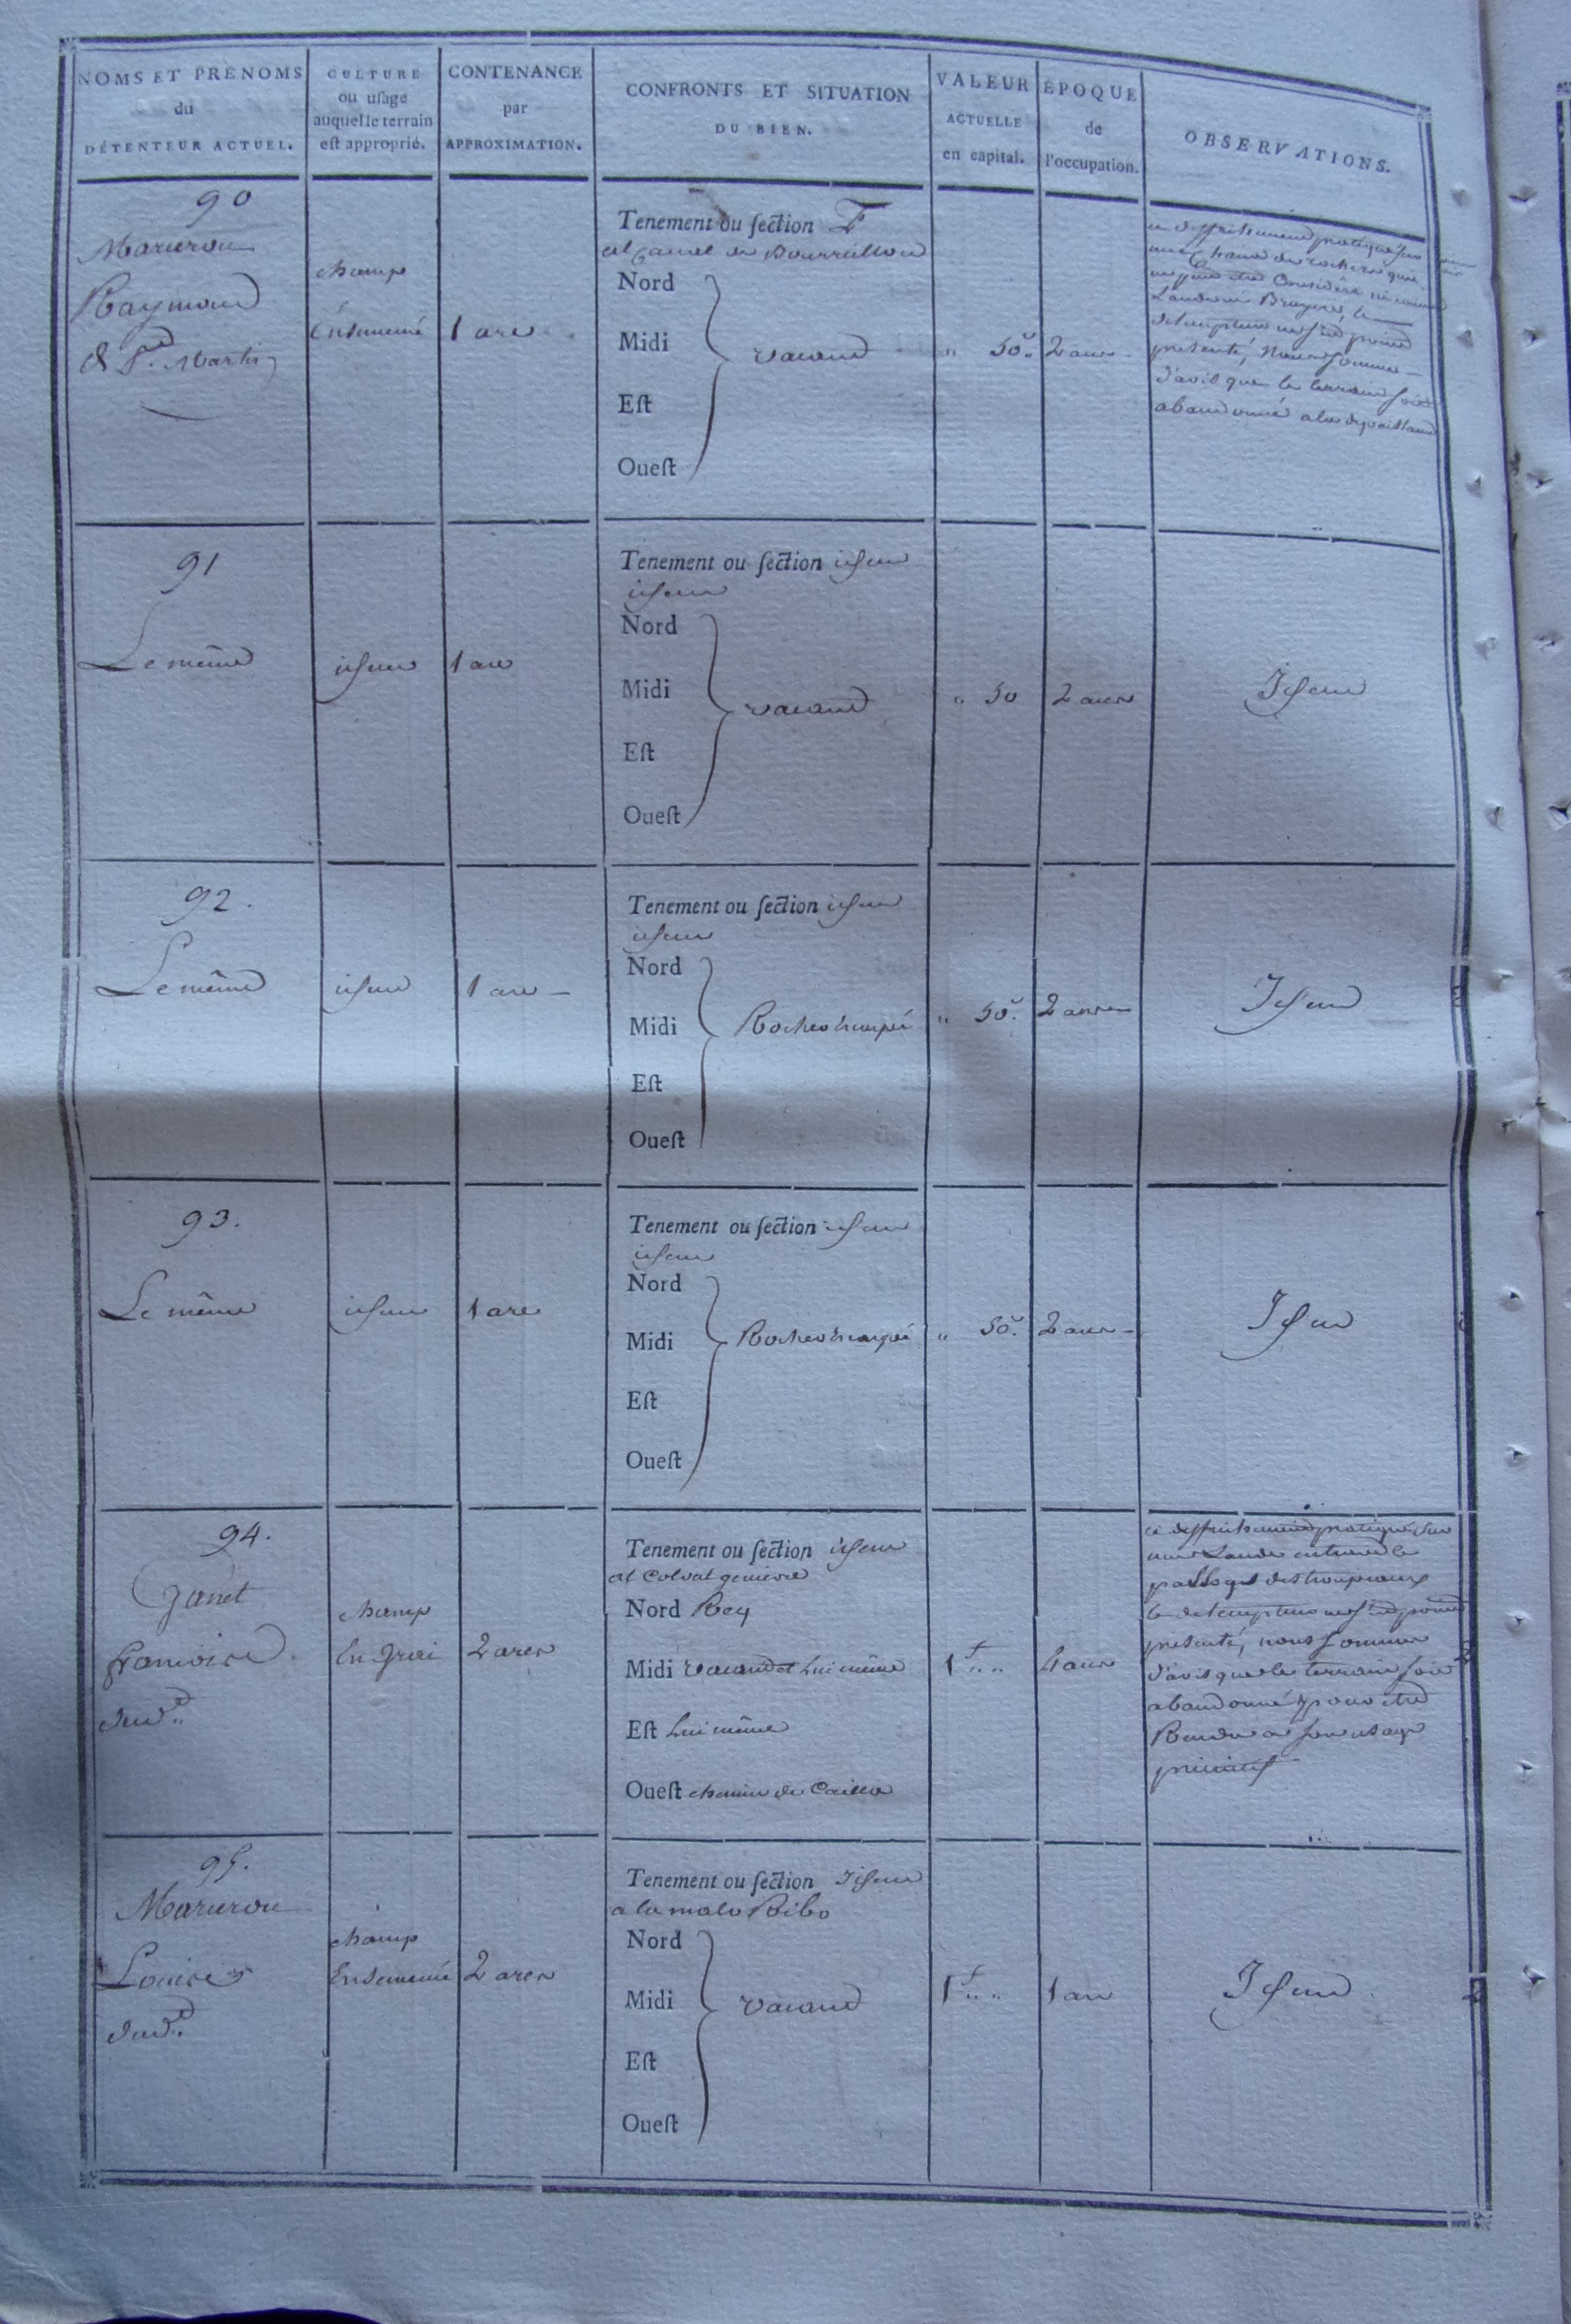 NOMS ET PRÉNOMS
du
DÉTENTEUR ACTUEL.
CULTURE
ou uſage
auquel le terrain
eſt approprié.
CONTENANCE
par
APPROXIMATION.
CONFRONTS ET SITUATION
DU BIEN.
VALEUR
ACTUELLE
en capital.
ÉPOQUE
de
l'occupation.
OBSERVATIONS.
90
Raymond
champ
Ensemencé
1 are
Tenement ou ſection F
Nord
Midi
Eſt
Oueſt
vacand
" 50
2 ans
ce deffrichement pratiqué sur
une chaine de rochers qui
ne peut etre Considéré ni comme
Lande ni Bruyere, le
detempteur ne s'est point
presenté, Nous sommes
d'avis que le terrain soit
abandonné a la depaissance
91
Le même
idem
1 are
Tenement ou ſection idem
idem
Nord
Midi
Eſt
Oueſt
vacand
" 50
2 ans
Idem
92.
Le même
idem
1 are
Tenement ou ſection idem
idem
Nord
Midi
Eſt
Oueſt
" 50.
2 ans
Idem
93.
Le même
idem
1 are
Tenement ou ſection idem
idem
Nord
Midi
Eſt
Oueſt
" 50.
2 ans
Idem
94.
Janet
françoise
champ
2 ares
Tenement ou ſection idem
Nord Rey
Midi vacand et Lui même
Eſt Lui même
Oueſt chemin de
1 f " "
4 ans
ce deffrichement pratiqué sur
une Lande entrave le
passage des troupeaux
le detempteur ne s'est point
presenté, nous sommes
d'avis que le terrain soit
abandonné pour etre
Rendu a son usage
primitif
95.
Louise
champ
Ensemencé
2 ares
Tenement ou ſection Idem
a la malo Ribo
Nord
Midi
Eſt
Oueſt
vacand
1 f " "
1 an
Idem